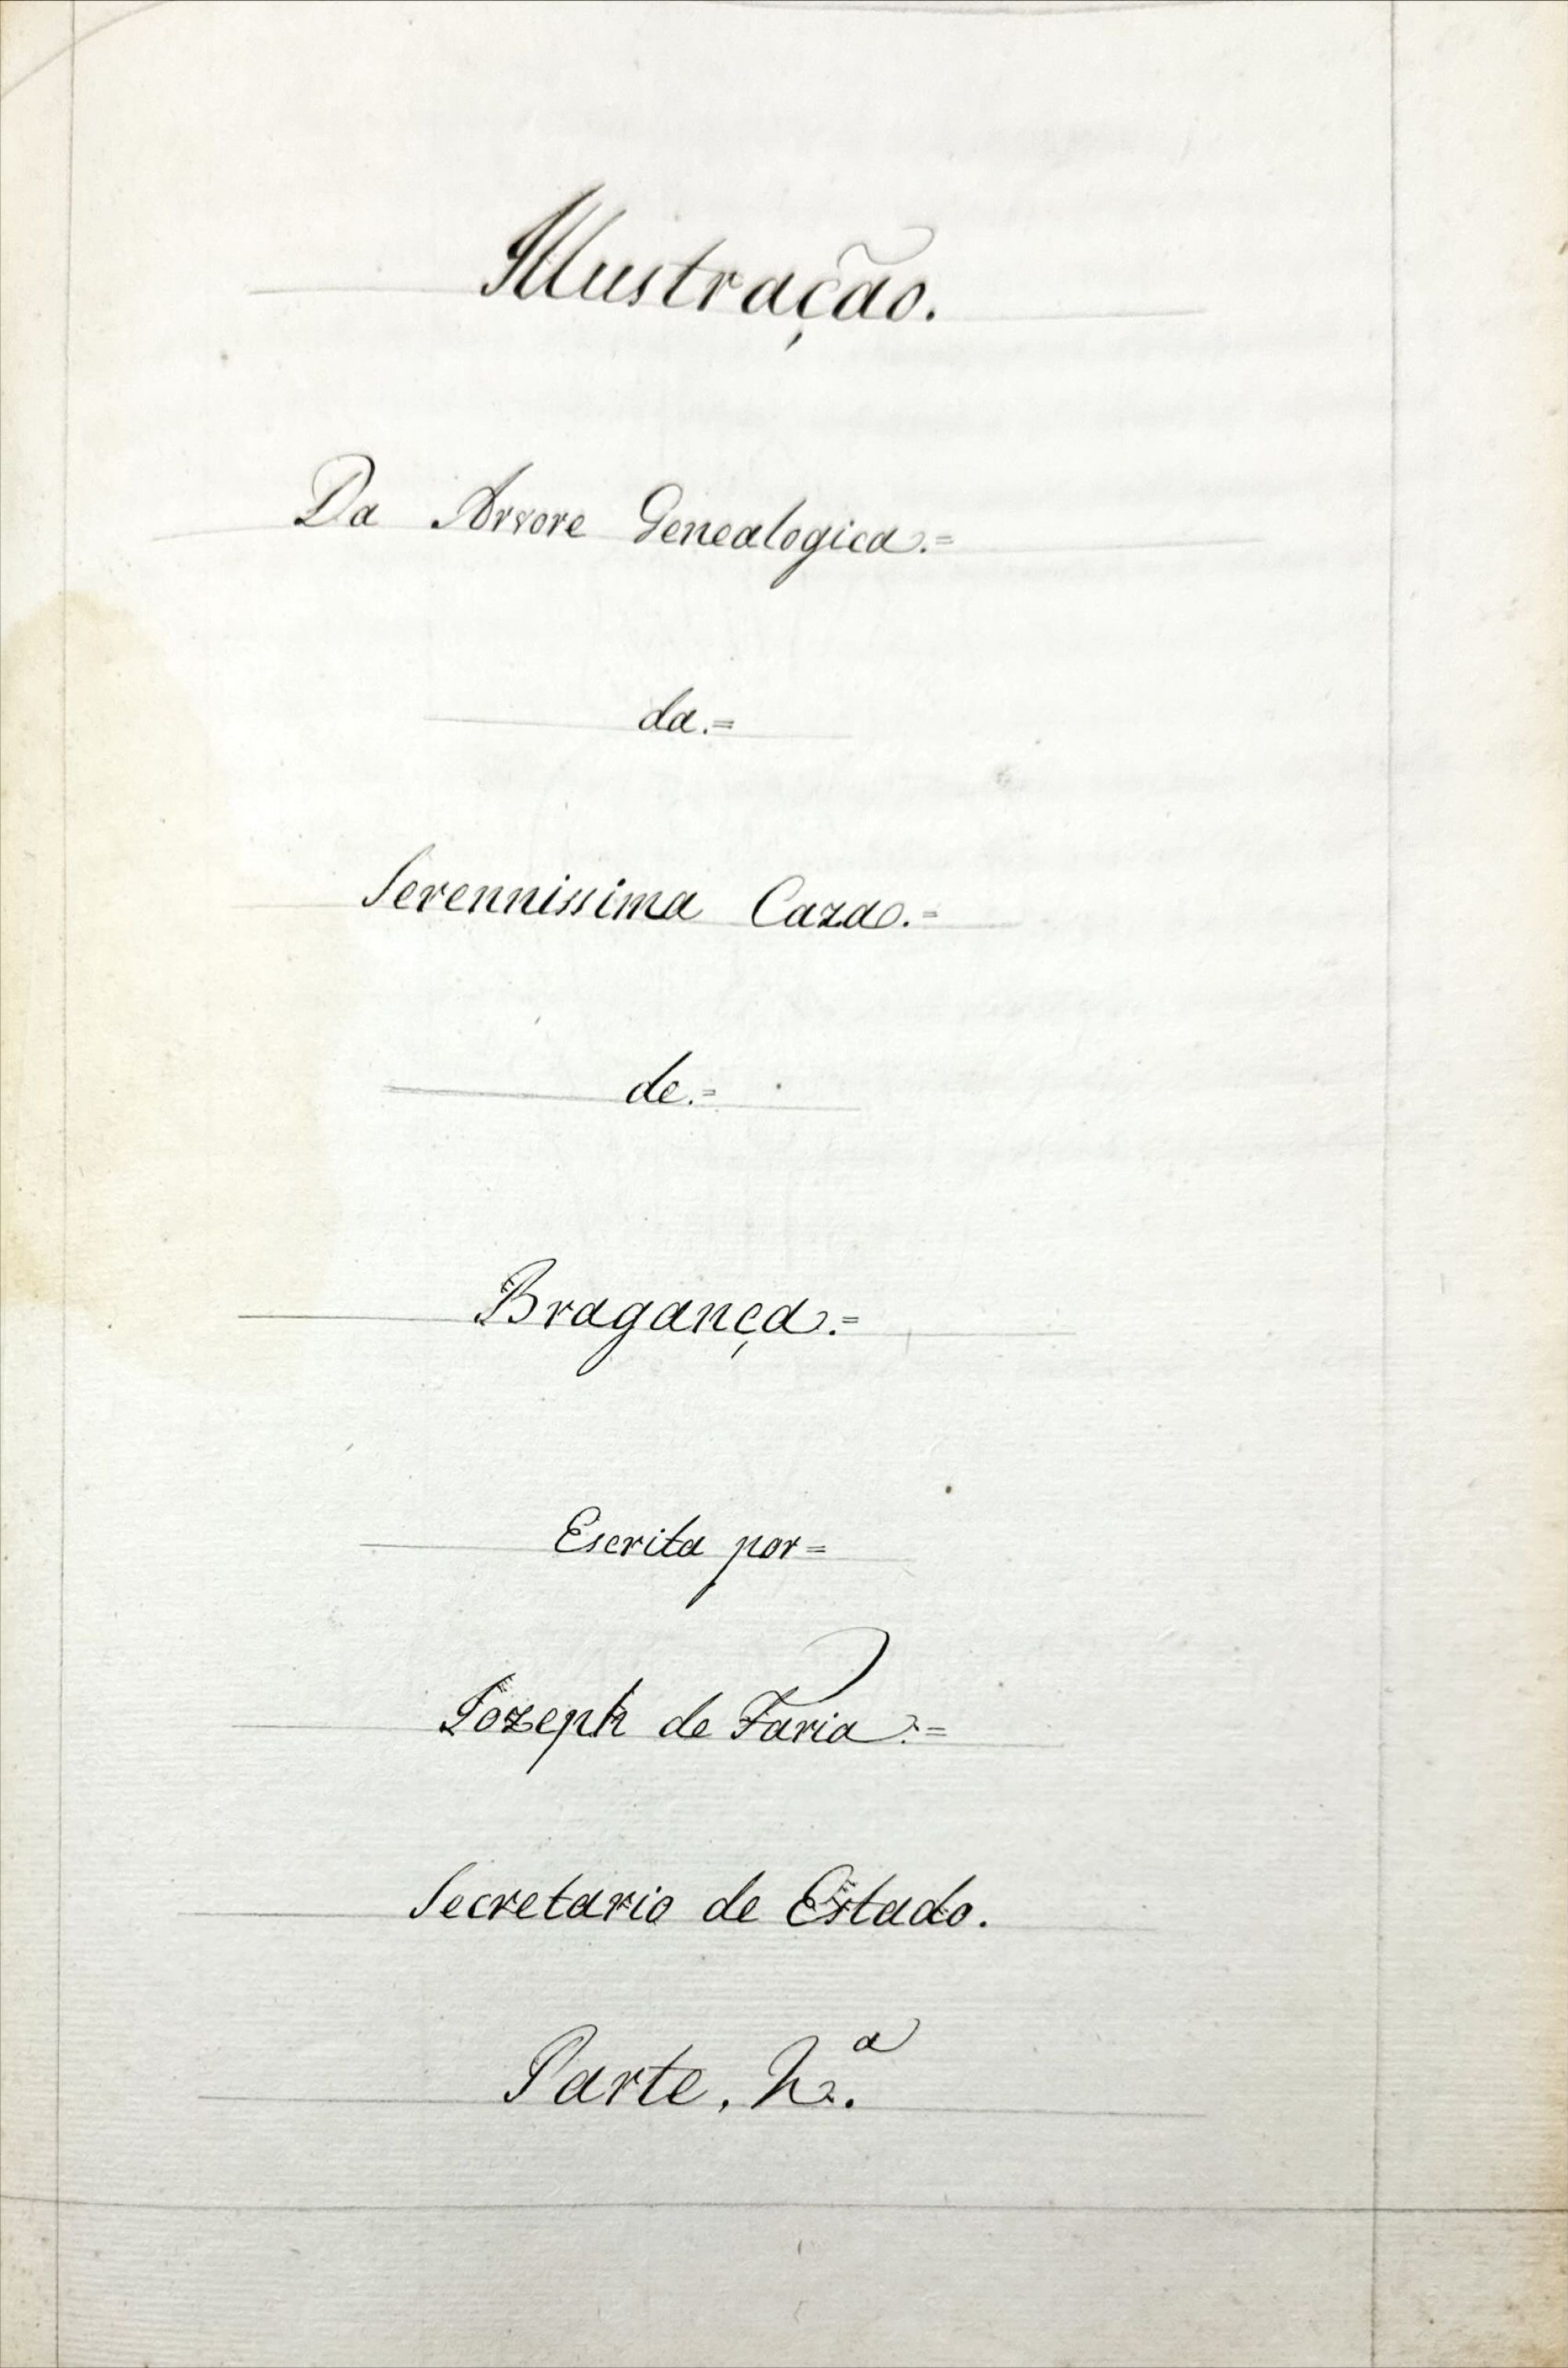 Illustração.
Da Arvore Genealogica.=
da.=
Serennissima Caza.=
de.=
Bragança.=
Escrita por=
Jozeph de Faria.=
Secretario de Estado.
Parte.